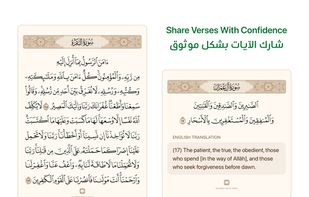 سُورَةُ البَقَرَةِ
ءَامَنَ ٱلرَّسُولُ بِمَآ أُنزِلَ إِلَيْهِ
مِن رَّبِّهِۦ وَٱلْمُؤْمِنُونَ كُلٌّ ءَامَنَ بِٱللَّهِ وَمَلَٰٓئِكَتِهِۦ
وَكُتُبِهِۦ وَرُسُلِهِۦ لَا نُفَرِّقُ بَيْنَ أَحَدٍ مِّن رُّسُلِهِۦ وَقَالُوا۟
سَمِعْنَا وَأَطَعْنَا غُفْرَانَكَ رَبَّنَا وَإِلَيْكَ ٱلْمَصِيرُ ٢٨٥ لَا يُكَلِّفُ
ٱللَّهُ نَفْسًا إِلَّا وُسْعَهَا لَهَا مَا كَسَبَتْ وَعَلَيْهَا مَا ٱكْتَسَبَتْ
رَبَّنَا لَا تُؤَاخِذْنَآ إِن نَّسِينَآ أَوْ أَخْطَأْنَا رَبَّنَا وَلَا تَحْمِلْ
عَلَيْنَآ إِصْرًا كَمَا حَمَلْتَهُۥ عَلَى ٱلَّذِينَ مِن قَبْلِنَا رَبَّنَا
وَلَا تُحَمِّلْنَا مَا لَا طَاقَةَ لَنَا بِهِۦ وَٱعْفُ عَنَّا وَٱغْفِرْ لَنَا
وَٱرْحَمْنَآ أَنتَ مَوْلَىٰنَا فَٱنصُرْنَا عَلَى ٱلْقَوْمِ ٱلْكَٰفِرِينَ ٢٨٦
Share Verses With Confidence
شارك الآيات بشكل موثوق
سُورَةُ آلِ عِمْرَانَ
ٱلصَّٰبِرِينَ وَٱلصَّٰدِقِينَ وَٱلْقَٰنِتِينَ
وَٱلْمُنفِقِينَ وَٱلْمُسْتَغْفِرِينَ بِٱلْأَسْحَارِ ١٧
ENGLISH TRANSLATION
(17) The patient, the true, the obedient, those
who spend [in the way of Allāh], and those
who seek forgiveness before dawn.